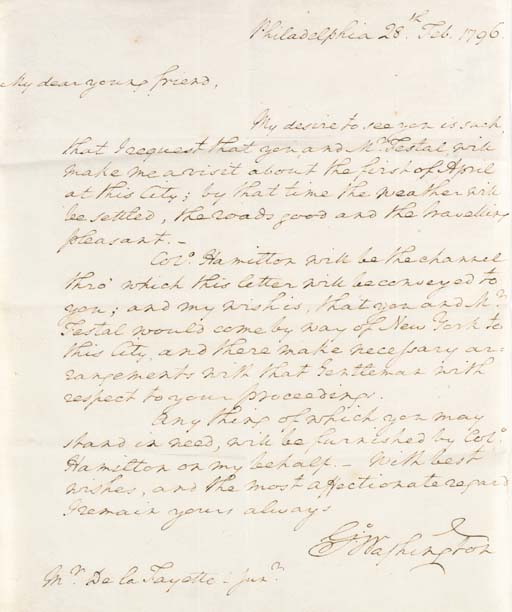 Philadelphia 28th Feb. 1796.
My dear young friend,
My desire to see you is such,
that I request that you and Mr Festal will
make me a visit about the first of April
at this City; by that time the weather will
be settled, the roads good and the travelling
pleasant. –
Colo. Hamilton will be the channel
thro' which this letter will be conveyed to
you; and my wish is, that you and Mr
Festal would come by way of New York to
this City and there make necessary ar=
rangements with that Gentleman with
respect to your proceedings.
Any thing of which you may
stand in need, will be furnished by Colo.
Hamilton on my behalf. – With best
wishes, and the most affectionate regard
I remain yours always
Go: Washington
Mr De la Fayette – Junr.